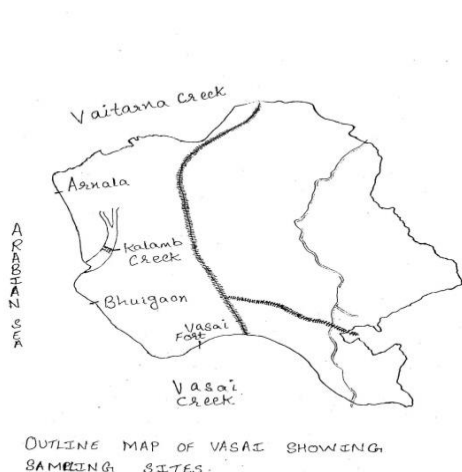 Vaitarna Creek
Arnala
ARABIAN SEA
Kalamb
Creek
Bhuigaon
Vasai
Fort
Vasai
Creek
OUTLINE MAP OF VASAI SHOWING
SAMPLING SITES.